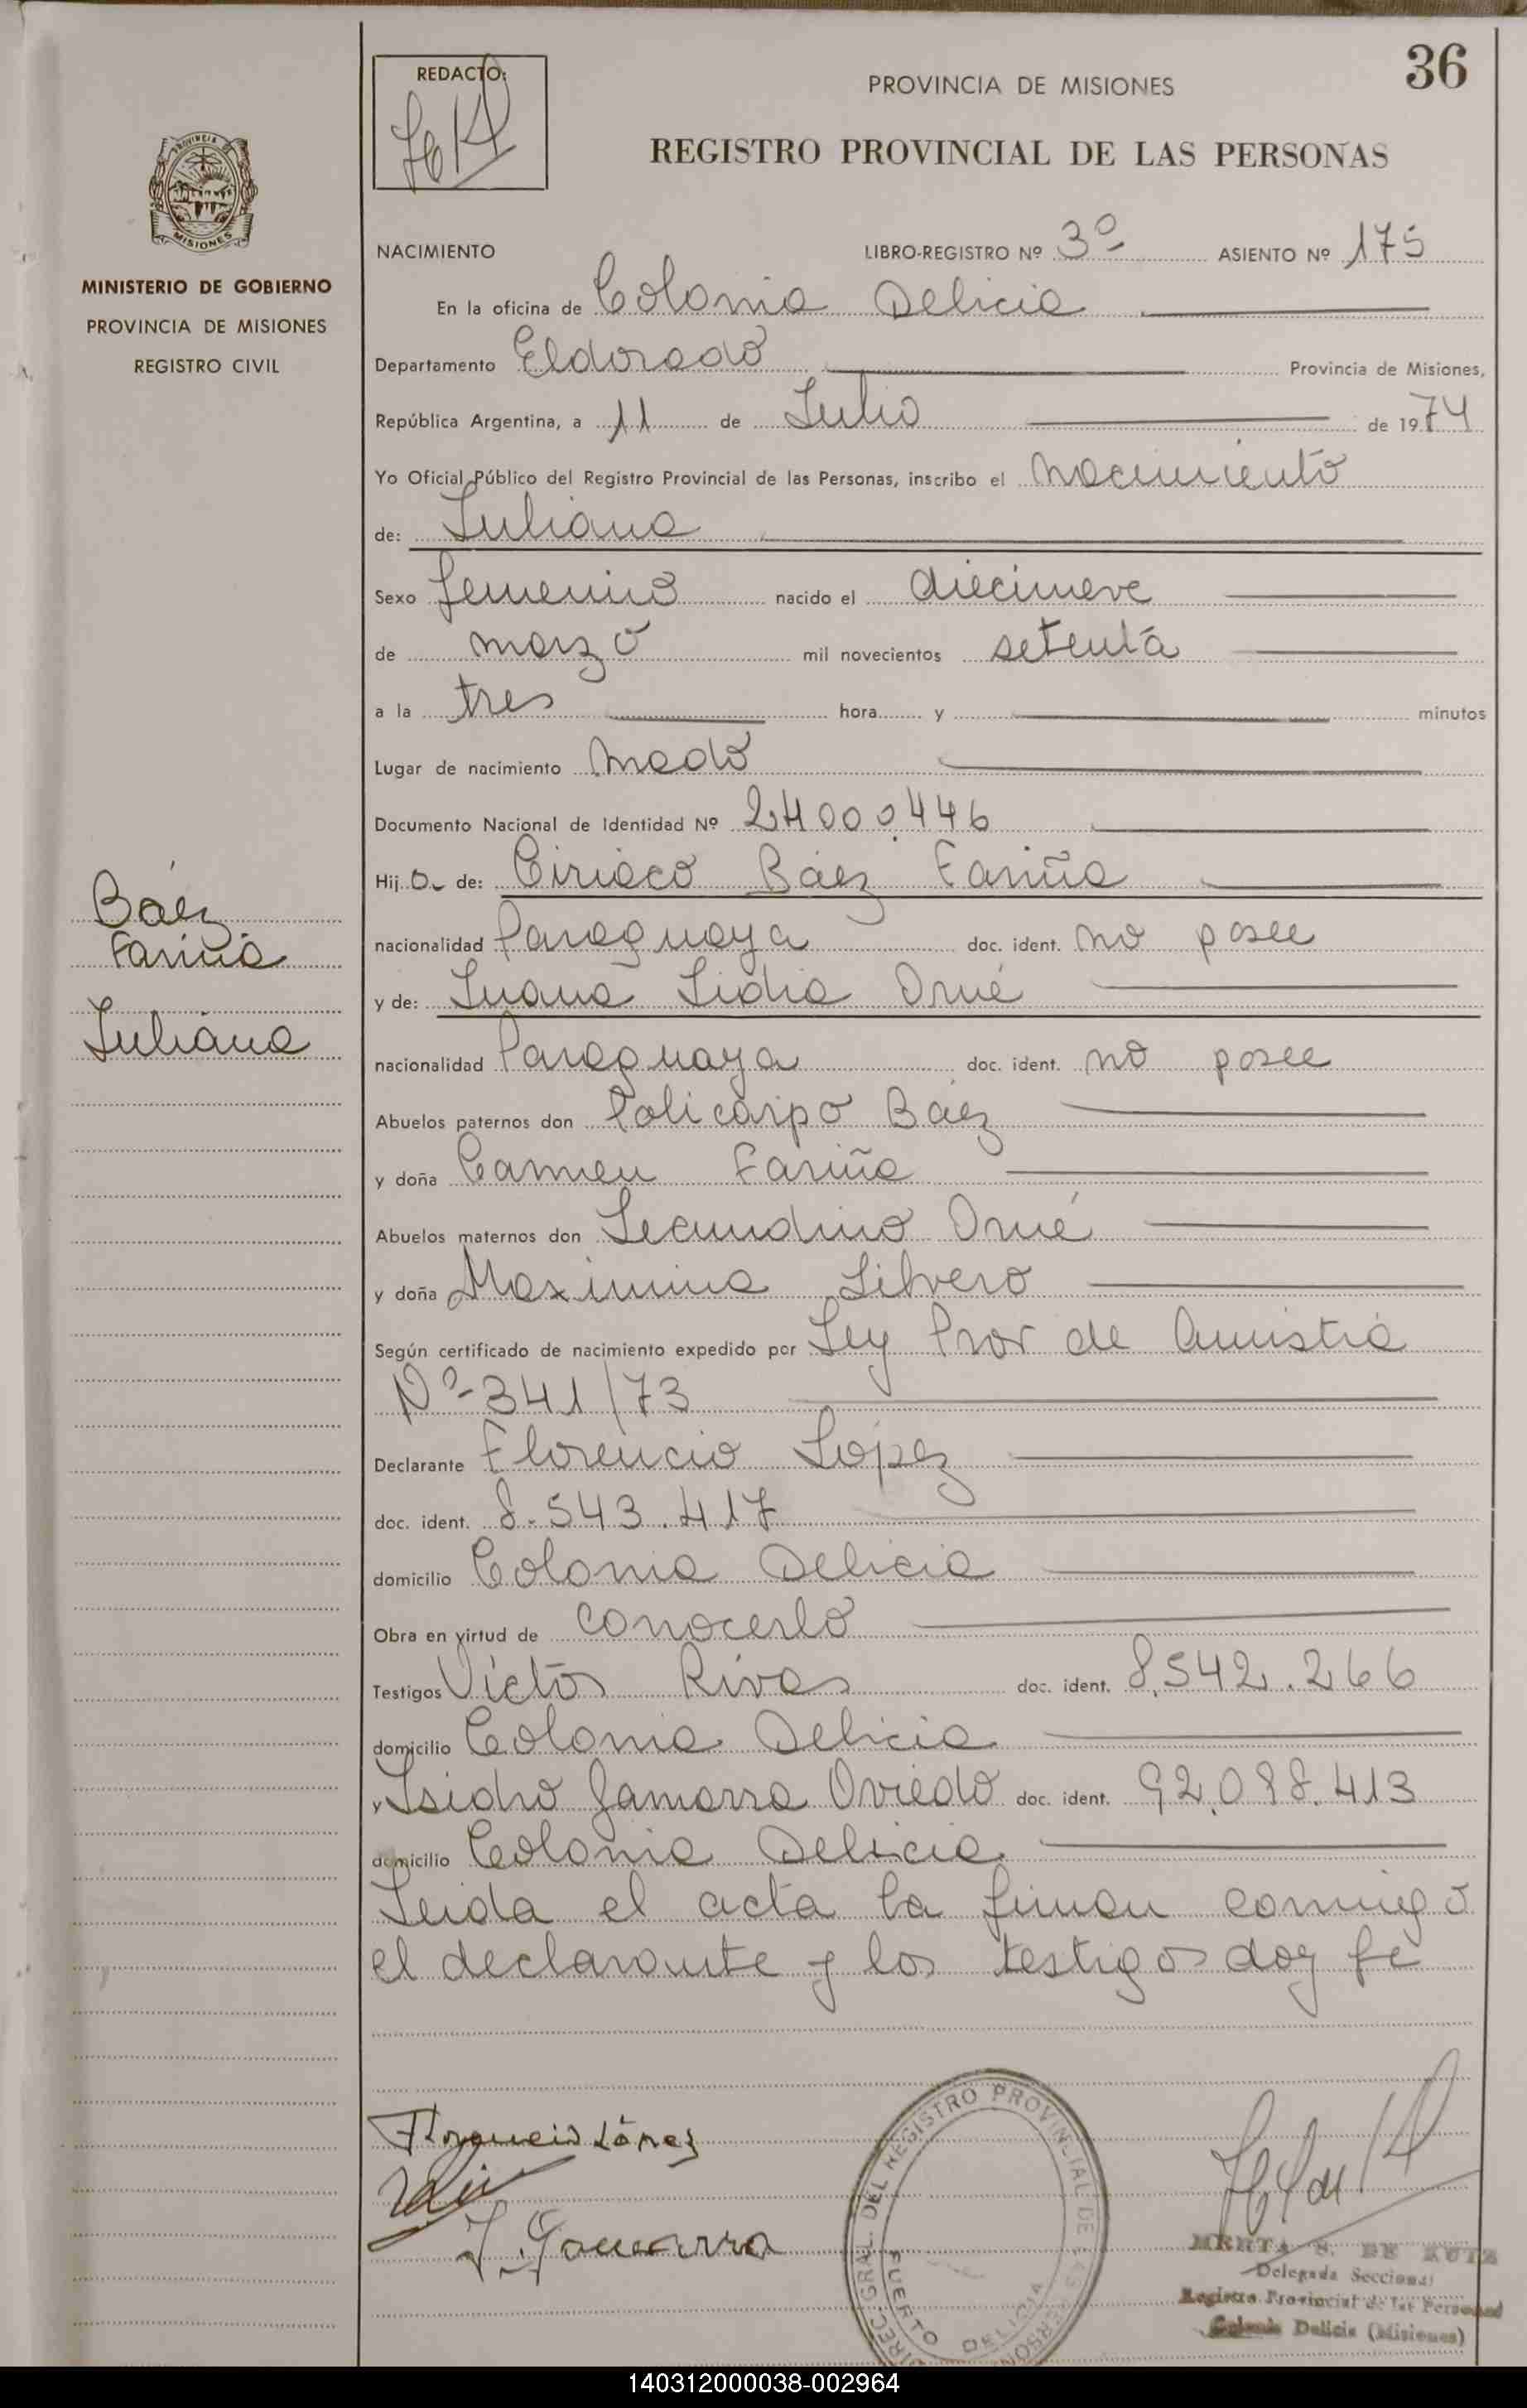 36
REDACTO:
PROVINCIA DE MISIONES
REGISTRO PROVINCIAL DE LAS PERSONAS
PROVINCIA DE
MISIONES
MINISTERIO DE GOBIERNO
PROVINCIA DE MISIONES
REGISTRO CIVIL
NACIMIENTO LIBRO-REGISTRO Nº 3º ASIENTO Nº 175
En la oficina de Colonia Delicia
Departamento Eldorado Provincia de Misiones,
República Argentina, a 11 de Julio de 1974
Yo Oficial Público del Registro Provincial de las Personas, inscribo el nacimiento
de: Juliana
Sexo femenino nacido el diecinueve
de marzo mil novecientos setenta
a la tres hora y minutos
Lugar de nacimiento Mado
Documento Nacional de Identidad Nº 24.000.446
Hija de: Ciriaco Báez Fariña
nacionalidad Paraguaya doc. ident. no posee
y de: Juana Lidia Orué
nacionalidad Paraguaya doc. ident. no posee
Abuelos paternos don Policarpo Báez
y doña Carmen Fariña
Abuelos maternos don Secundino Orué
y doña Maximina Silvero
Según certificado de nacimiento expedido por Ley Prov de Amnistia
Nº 341/73
Declarante Florencio López
doc. ident. 8.543.417
domicilio Colonia Delicia
Obra en virtud de conocerlo
Testigos Victor Rivas doc. ident. 8.542.266
domicilio Colonia Delicia
y Isidro Gamarra Oviedo doc. ident. 92.098.413
domicilio Colonia Delicia
Leida el acta la firman conmigo
el declarante y los testigos doy fe
Báez
Fariña
Juliana
Florencio López
I. Gamarra
DIREC. GRAL. DEL REGISTRO PROVINCIAL DE LAS PERSON
PUERTO DELICIA
MERTA S. DE RUIZ
Delegada Seccional
Registro Provincial de las Personas
Colonia Delicia (Misiones)
140312000038-002964